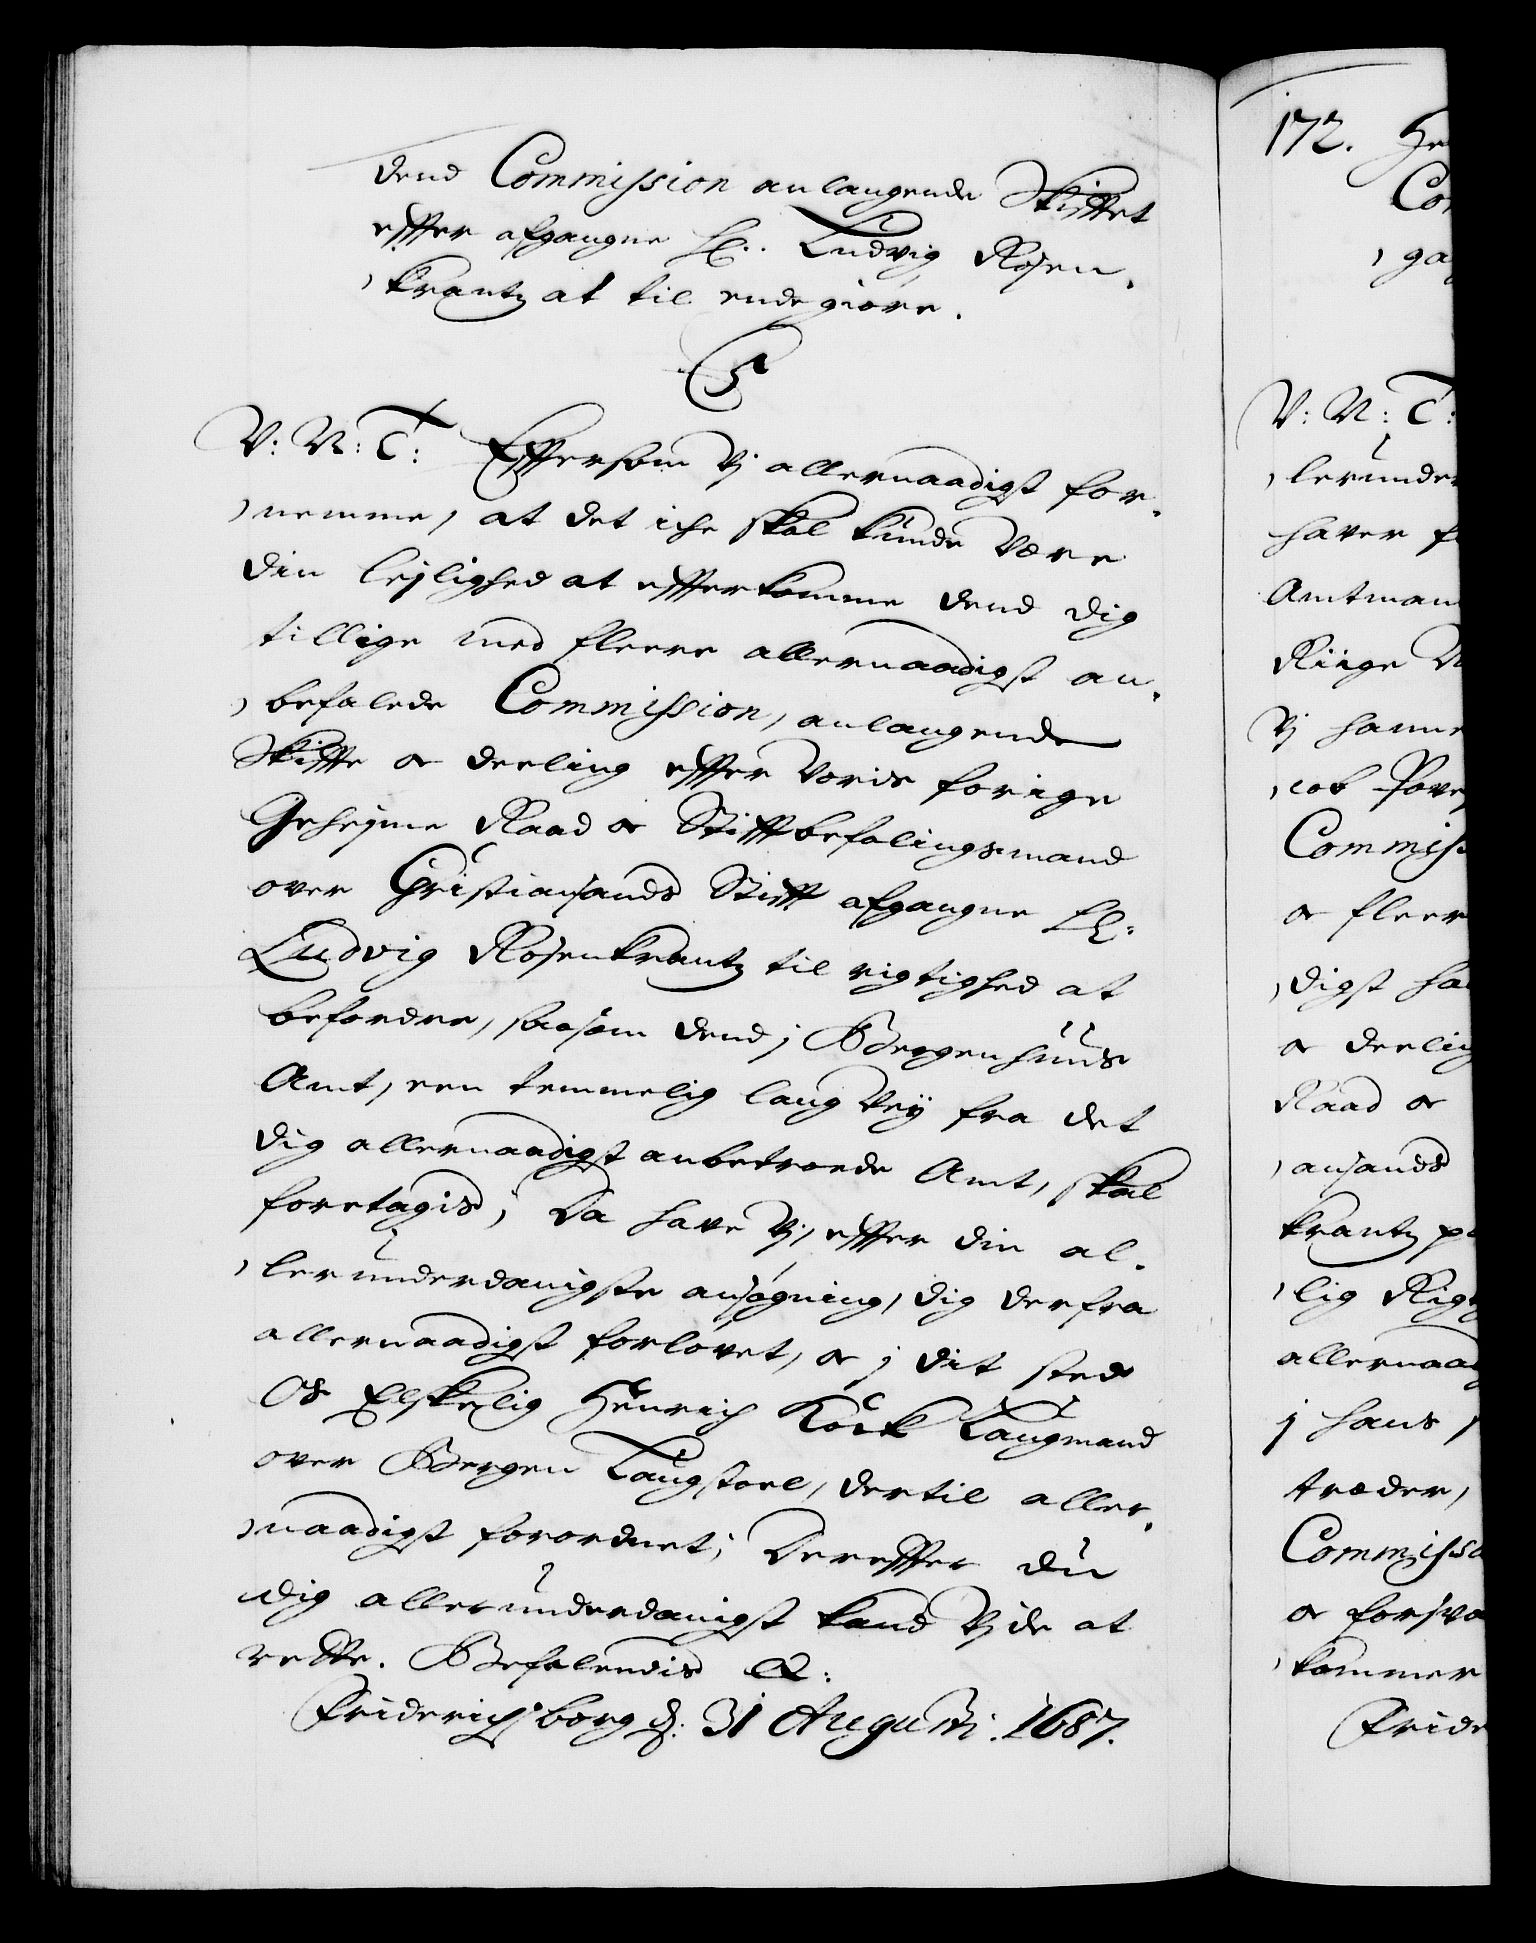 dend Commission anlangende Skifftet
effter afgangne Hr. Ludvig Rosen,
,krantz at til ende giöre.
C5
V: N: T: Effersom Vj allernaadigst for,
,nemme, at det iche skal kunde være
din lejlighed at effterkomme dend dig
tillige med fleere allernaadigst an,
,befalede Commission, anlangende
Skiffte oc deeling effter Voris forige
Geheime Raad oc Stifftbefalingsmand
over Christiansands Stifft afgangne Hr:
Ludvig Rosenkrantz til rigtighed at
befordre, saasom dend j Bergenhuus
Amt, een temmelig lang Vej fra det
dig allernaadigst anbetroede Amt, skal
foretagis; Da have Vj, effter din al,
,lerunderdanigste ansøgning, dig derfra
allernaadigst forlovet, oc j dit sted
Os Elskelig Henrich Kock Laugmand
over Bergen Laugstoel, dertil aller,
,naadigst forordnet; Dereffter du
dig allerunderdanigst kand Vide at
rette. Befalendis &:
Friderichsborg d: 31 Augusti. 1687.
172. He
Co
,ga
V: N: T:
,lerunder
haver f
Amtman
Riige
Vj hanne
,cob Pove
Commiss
oc fleer
,digst ha
oc deelin
Raad oc
,ansands
krantz p
,lig Rigt
allernaad
j hans
træder,
Commissa
oc forsva
,kommer
Fride